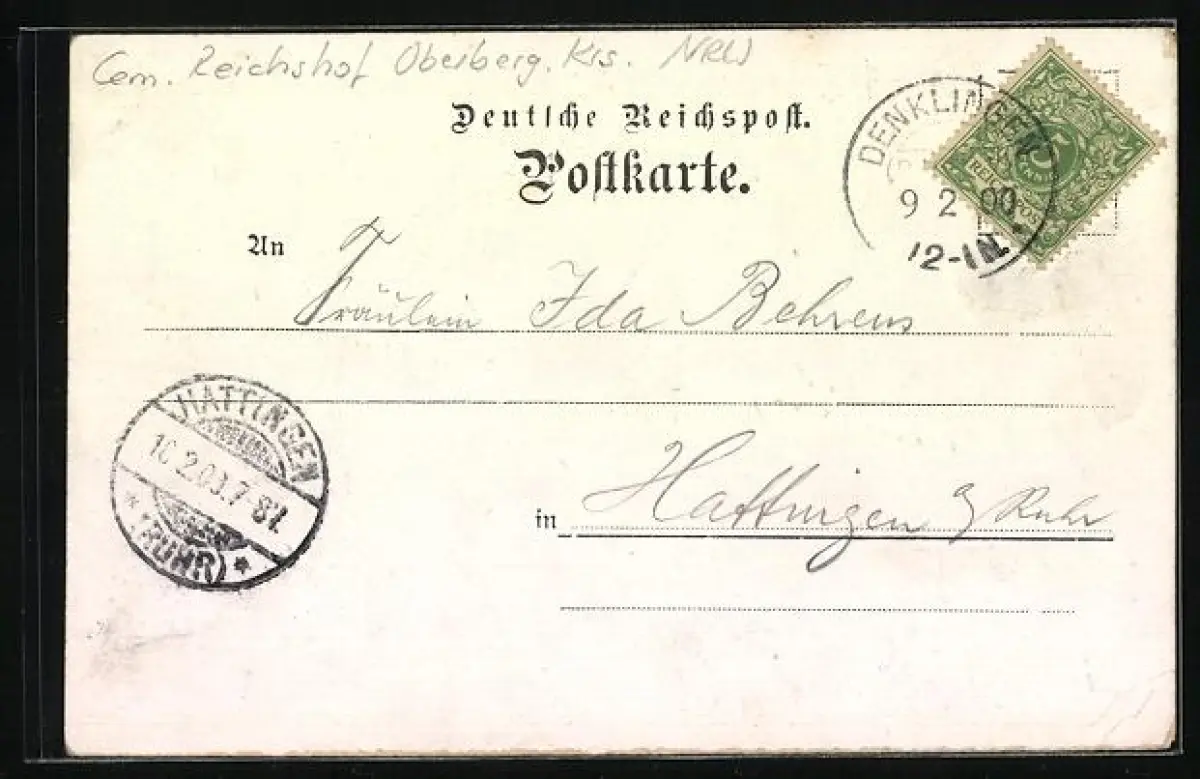 Gem. Reichshof Oberberg. Krs. NRW
Deutsche Reichspost.
Postkarte.
DENKLINGEN
9 2 00
12-1N.
5
REICHSPOST
An
Fräulein Ida Behrens
HATTINGEN
10.2.00.7-8V.
* (RUHR) *
in Hattingen a/ Ruhr